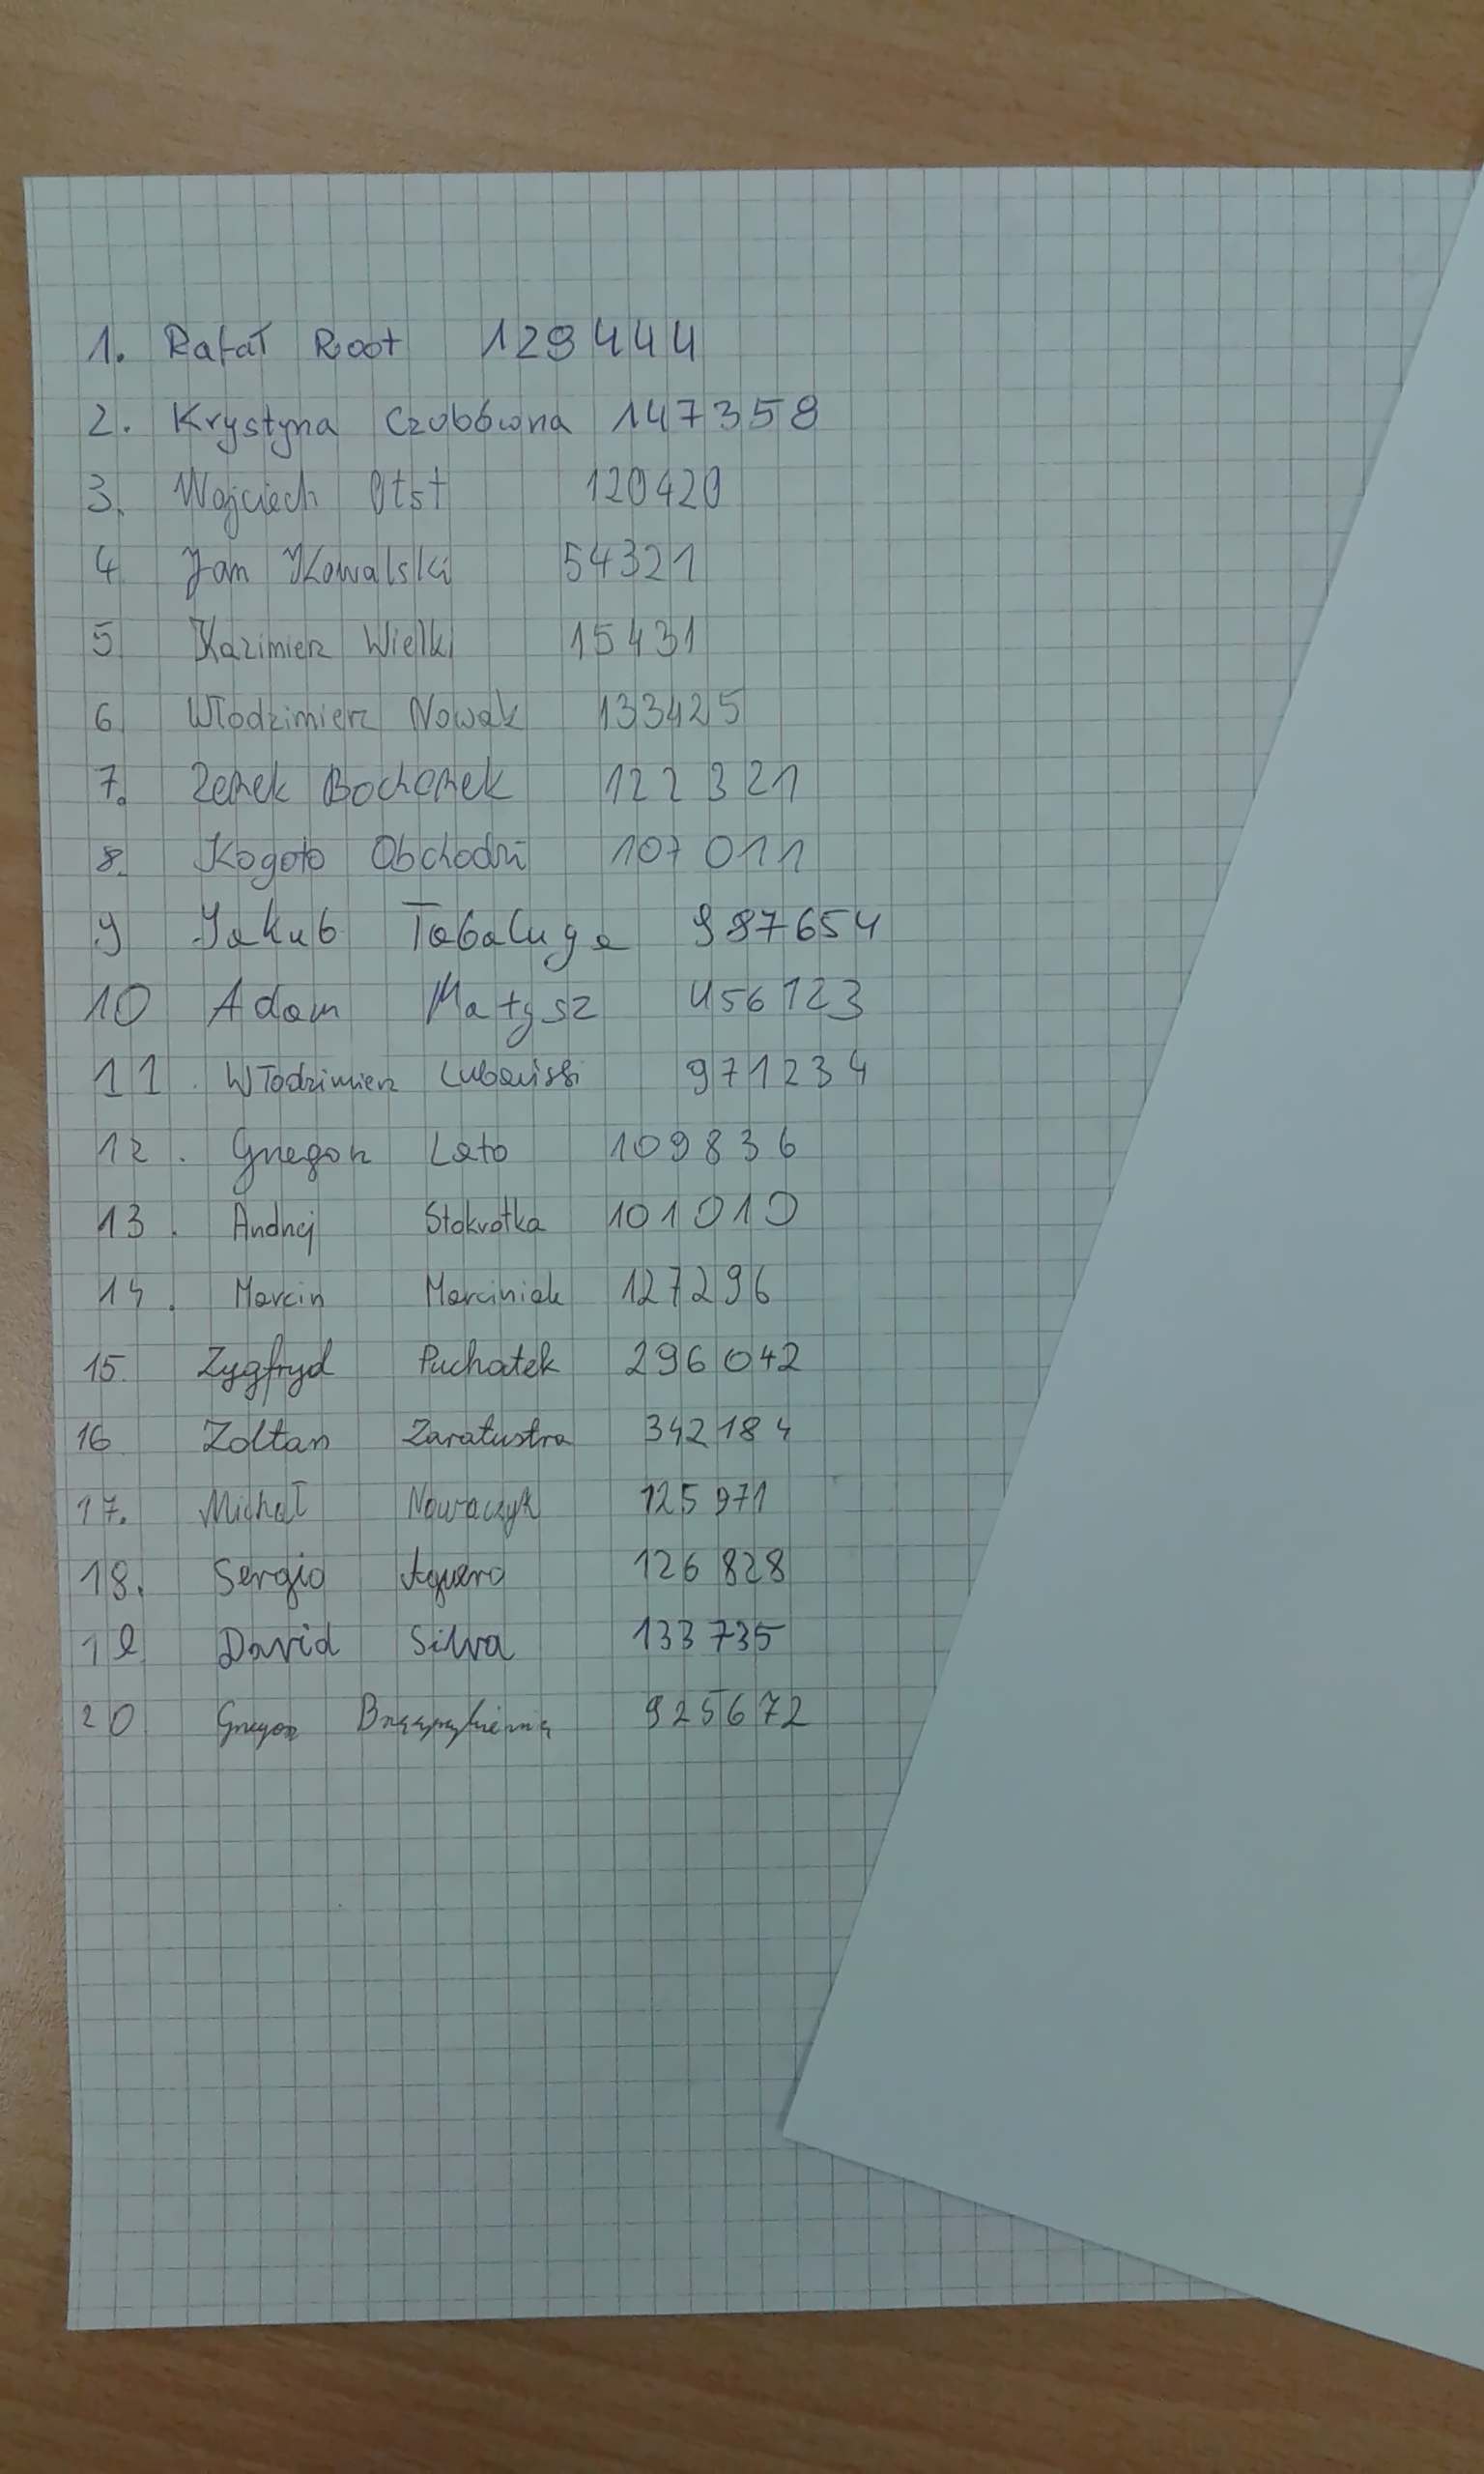 1. Rafał Root 129444
2. Krystyna Czubówna 147358
3. Wojciech Otst 120420
4 Jan Kowalski 54321
5 Kazimierz Wielki 15431
6 Włodzimierz Nowak 133425
7. Zenek Bochenek 122321
8. Kogoto Obchodzi 107011
9 Jakub Tabaluga 987654
10 Adam Małysz 456123
11. Włodzimierz Lubański 971234
12. Grzegorz Lato 109836
13. Andrzej Stokrotka 101010
14. Marcin Marciniak 127296
15. Zygfryd Puchatek 296042
16 Zoltan Zaratustra 342184
17. Michał Nowaczyk 125971
18. Sergio Aguero 126828
19 David Silva 133735
20 Grzegorz 925672